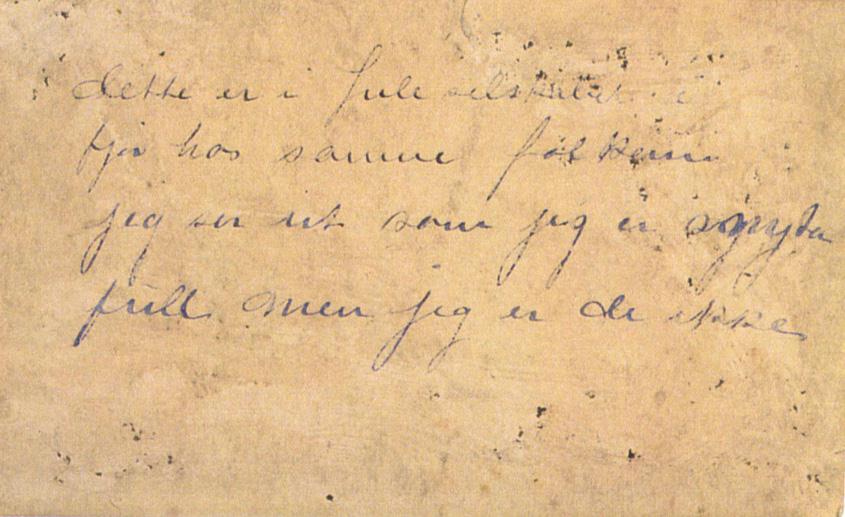 dette er i Jule selskabet i
fjor hos samme folkene
jeg ser ut som jeg er
full men jeg er de ikke